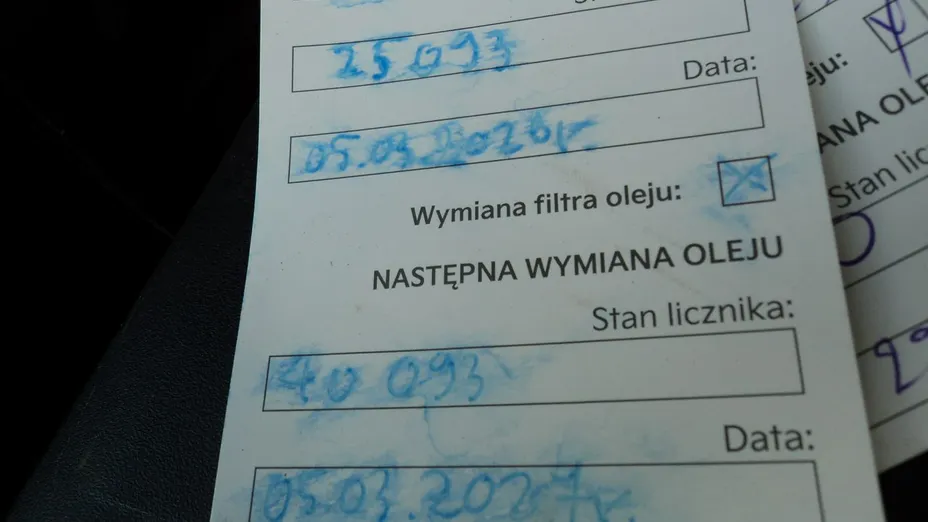 25 093
Data:
05.03.2026r.
Wymiana filtra oleju:
NASTĘPNA WYMIANA OLEJU
Stan licznika:
40 093
Data:
05.03.2027r.
eju:
ANA OLE
Stan lic